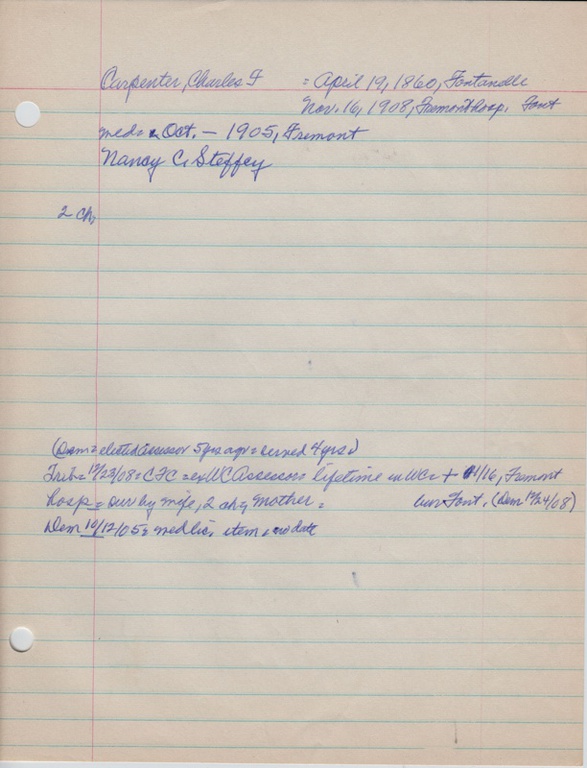 Carpenter, Charles F = April 19, 1860, Fontanelle
Nov. 16, 1908, Fremont hosp. Font
med= Oct. – 1905, Fremont
Nancy C. Steffey
2 ch,
(Dem = elected assessor 5 yrs ago = served 4 yrs)
Trib= 12/23/08 = CFC = ex WC Assessor lifetime in WC = + 11/16, Fremont
hosp = sur by wife, 2 ch, mother = bur Font, (Dem 12/24/08)
Dem 10/12/05 = med lic, item, no date